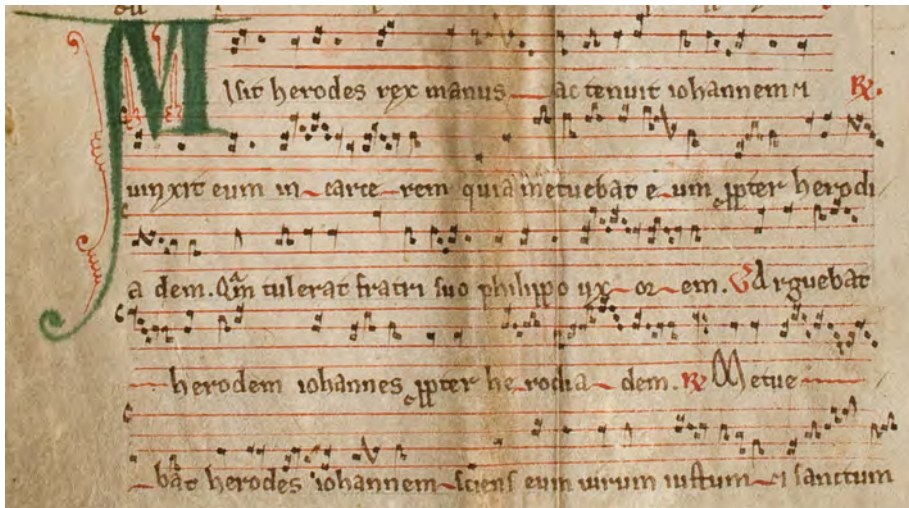 Misit herodes rex manus ac tenuit iohannem ⁊ ℟.
uinxit eum in carcerem quia metuebat eum ꝓpter herodi
adem. Qm̄ tulerat fratri suo philippo uxorem. ℣ Arguebat
herodem iohannes ꝓpter herodiadem. ℟ Metue
bat herodes iohannem sciens eum uirum iustum ⁊ sanctum